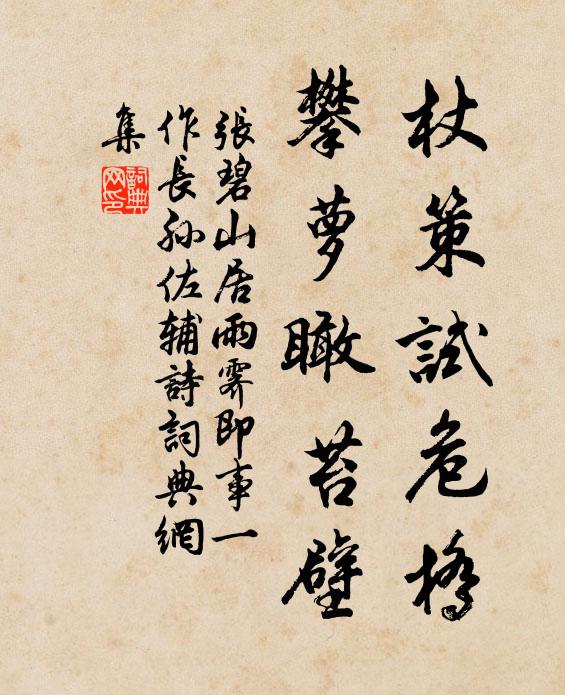 杖策試危橋
攀萝瞰苔壁
張碧山居雨霁即事一
作長孫佐辅詩詞典網
集
詞典
网印